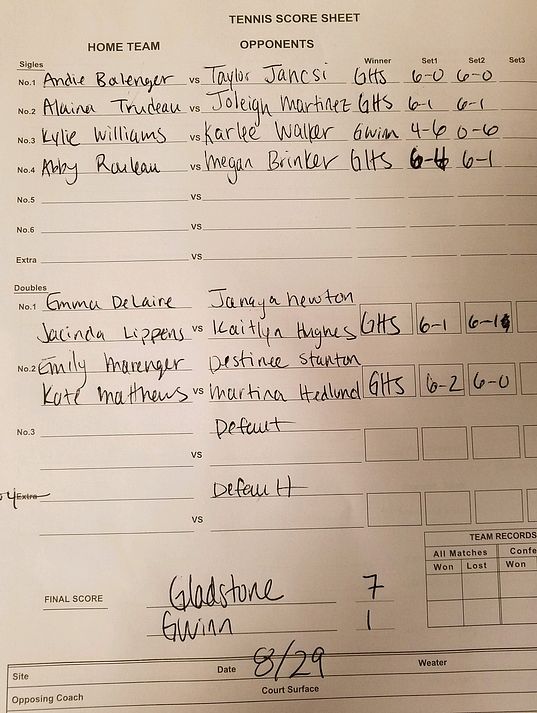 TENNIS SCORE SHEET
HOME TEAM OPPONENTS
Sigles Winner Set1 Set2 Set3
No.1 Andie Balenger vs Taylor Jancsi GHS 6-0 6-0
No.2 Alaina Trudeau vs Joleigh Martinez GHS 6-1 6-1
No.3 Kylie Williams vs Karlee Walker Gwinn 4-6 0-6
No.4 Abby Rouleau vs Megan Brinker GHS 6-4 6-1
No.5 vs
No.6 vs
Extra vs
Doubles
No.1 Emma DeLaire Janaya newton
Jacinda Lippens vs Kaitlyn Hughes GHS 6-1 6-1
No.2 Emily Marenger Destinee Stanton
Kate Matthews vs Martina Hedlund GHS 6-2 6-0
No.3 Default
vs
4 Extra Default
vs
TEAM RECORDS
All Matches Confe
Won Lost Won
FINAL SCORE Gladstone 7
Gwinn 1
Site Date 8/29 Weater
Opposing Coach Court Surface